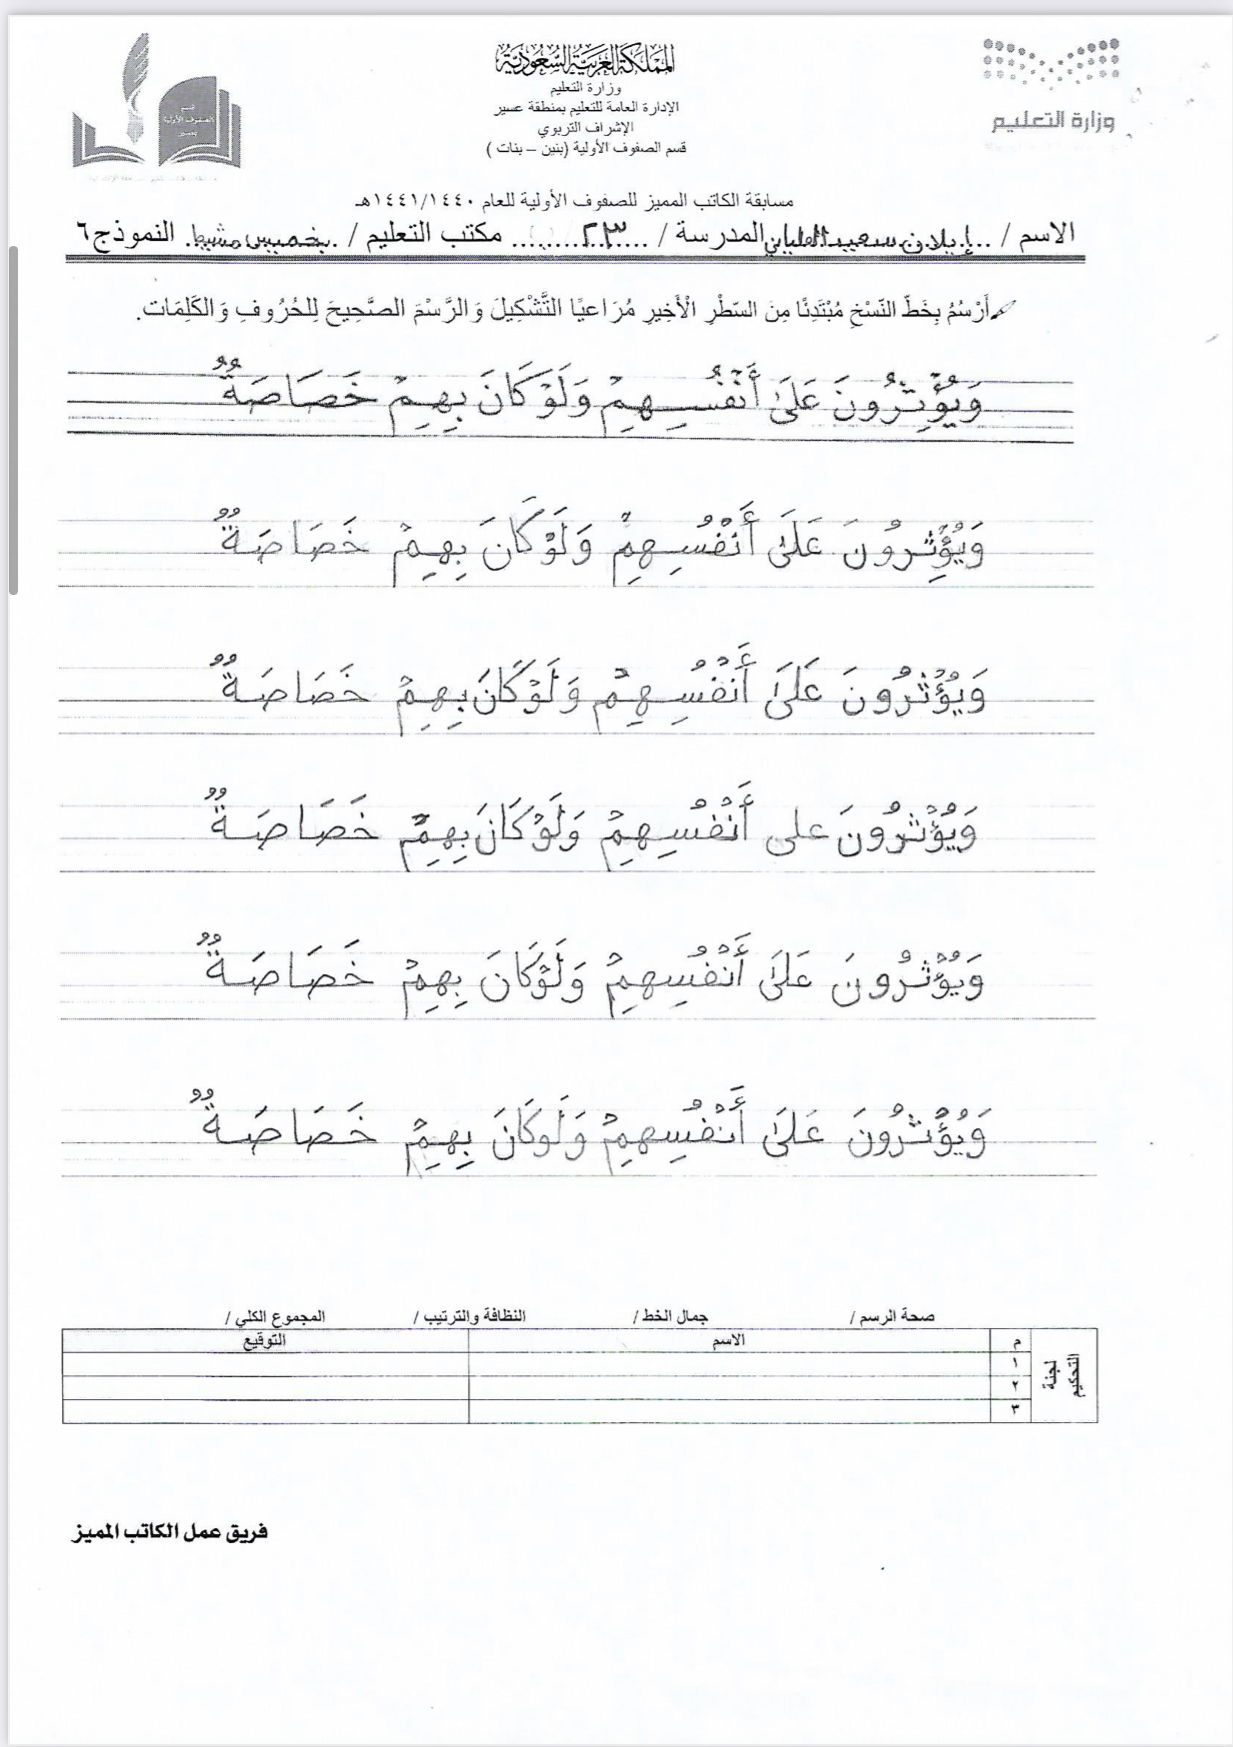 المملكة العربية السعودية
وزارة التعليم
الإدارة العامة للتعليم بمنطقة عسير
الإشراف التربوي
قسم الصفوف الأولية (بنين – بنات )
وزارة التعليم
مسابقة الكاتب المميز للصفوف الأولية للعام ١٤٤١/١٤٤٠هـ
الاسم / ..إيلان سعيد العلياني المدرسة / ...٢٣...... مكتب التعليم / .بخميس مشيط. النموذج٦
أَرْسُمُ بِخَطِّ النّسْخِ مُبْتَدِئًا مِنَ السّطْرِ الْأَخِيرِ مُرَاعيًا التَّشْكِيلَ وَالرَّسْمَ الصَّحِيحَ لِلحُرُوفِ وَالكَلِمَات.
وَيُؤْثِرُونَ عَلَىٰ أَنْفُسِهِمْ وَلَوْ كَانَ بِهِمْ خَصَاصَةٌ
وَيُؤْثِرُونَ عَلَىٰ أَنْفُسِهِمْ وَلَوْ كَانَ بِهِمْ خَصَاصَةٌ
وَيُؤْثرُونَ عَلَىٰ أَنْفُسِهِمْ وَلَوْ كَانَ بِهِمْ خَصَاصَةٌ
وَيُؤْثرُونَ على أَنْفُسِهِمْ وَلَوْ كَانَ بِهِمْ خَصَاصَةٌ
وَيُؤْثرُونَ عَلَىٰ أَنْفُسِهِمْ وَلَوْ كَانَ بِهِمْ خَصَاصَةٌ
وَيُؤْثرُونَ عَلَىٰ أَنْفُسِهِمْ وَلَو كَانَ بِهِمْ خَصَاصَةٌ
صحة الرسم / جمال الخط / النظافة والترتيب / المجموع الكلي /
لجنة التحكيم
م الاسم التوقيع
١
٢
٣
فريق عمل الكاتب المميز